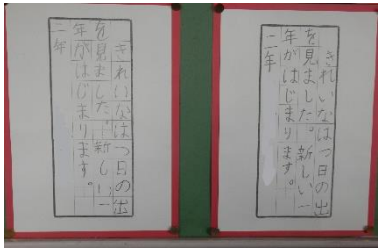 きれいなはつ日の出
を見ました。新しい一
年がはじまります。
二年
きれいなはつ日の出
を見ました。新しい一
年がはじまります。
二年